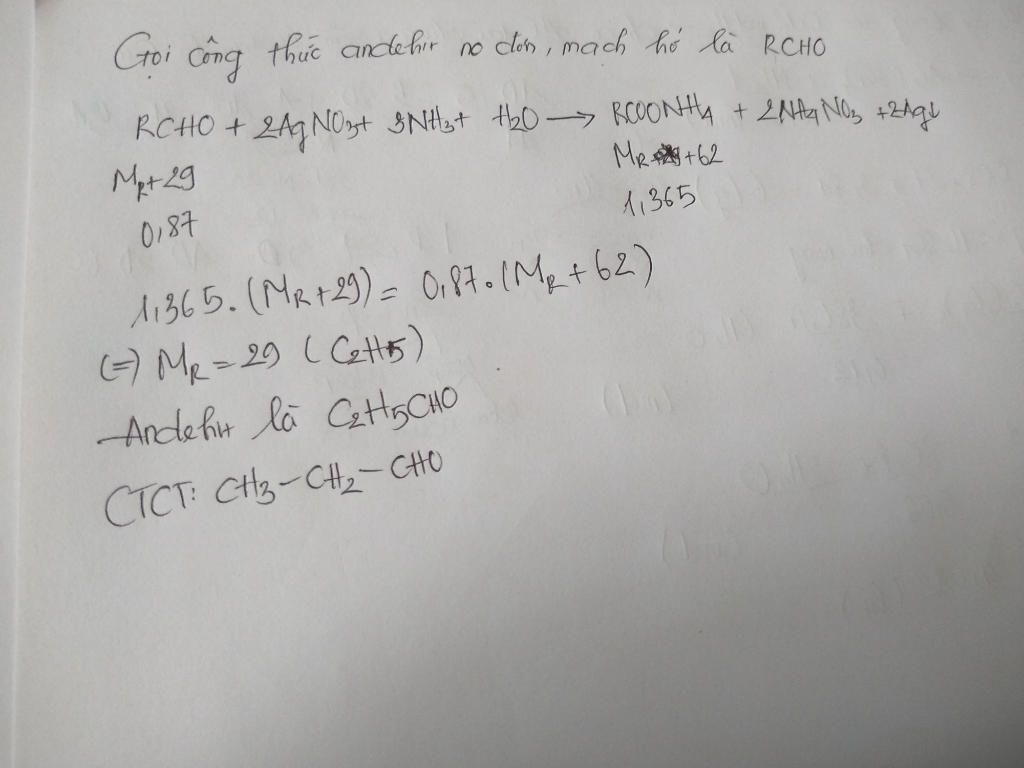 Gọi công thức andehit no đơn, mạch hở là RCHO
RCHO + 2AgNO3 + 3NH3 + H2O → RCOONH4 + 2NH4NO3 + 2Ag↓
MR+29 MR+62
0,87 1,365
1,365.(MR+29) = 0,87.(MR+62)
(=) MR = 29 (C2H5)
Andehit là C2H5CHO
CTCT: CH3-CH2-CHO